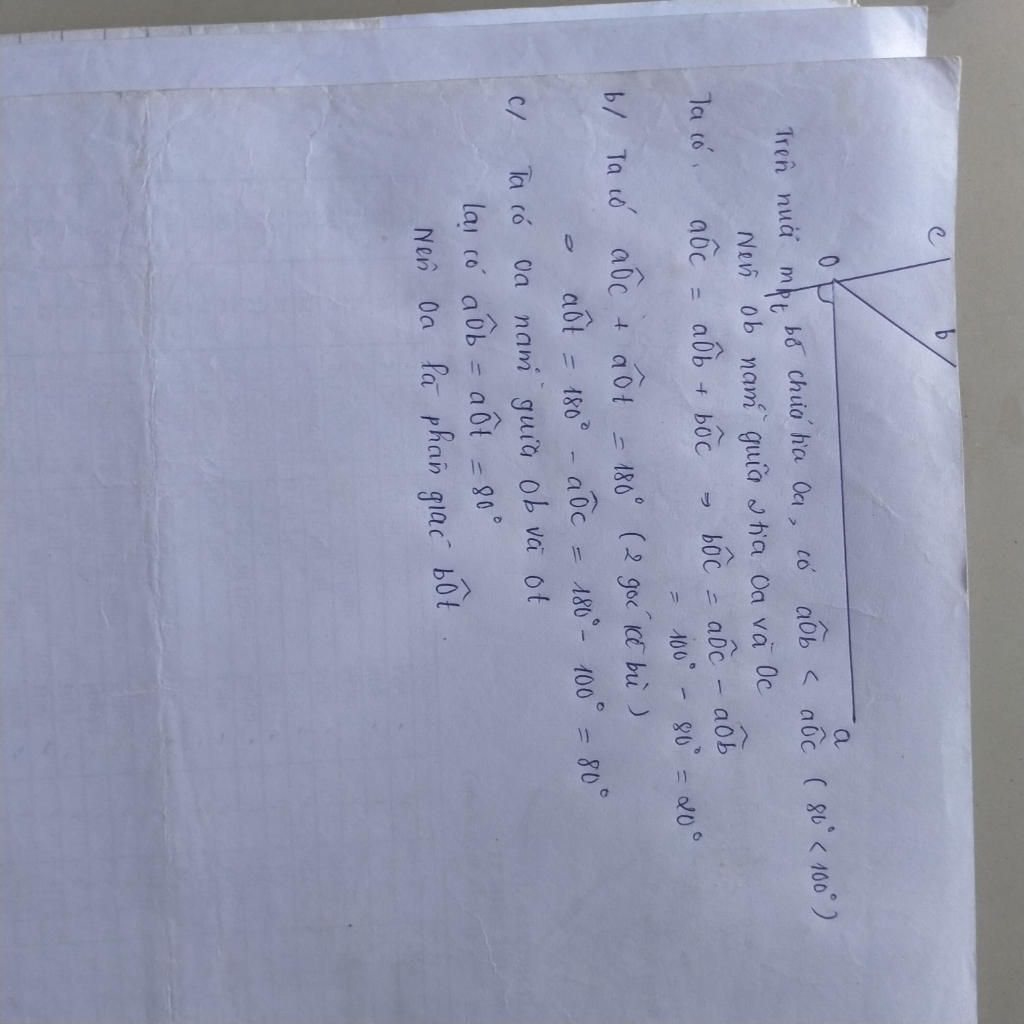 c
b
O
a
t
Trên nửa mp bờ chứa tia Oa, có aÔb < aÔc ( 80° < 100° )
Nên Ob nằm giữa 2 tia Oa và Oc
Ta có. aÔc = aÔb + bÔc ⇒ bÔc = aÔc - aÔb
= 100° - 80° = 20°
b/ Ta có aÔc + aÔt = 180° ( 2 góc kề bù )
⇒ aÔt = 180° - aÔc = 180° - 100° = 80°
c/ Ta có Oa nằm giữa Ob và Ot
lại có aÔb = aÔt = 80°
Nên Oa là phân giác bÔt.